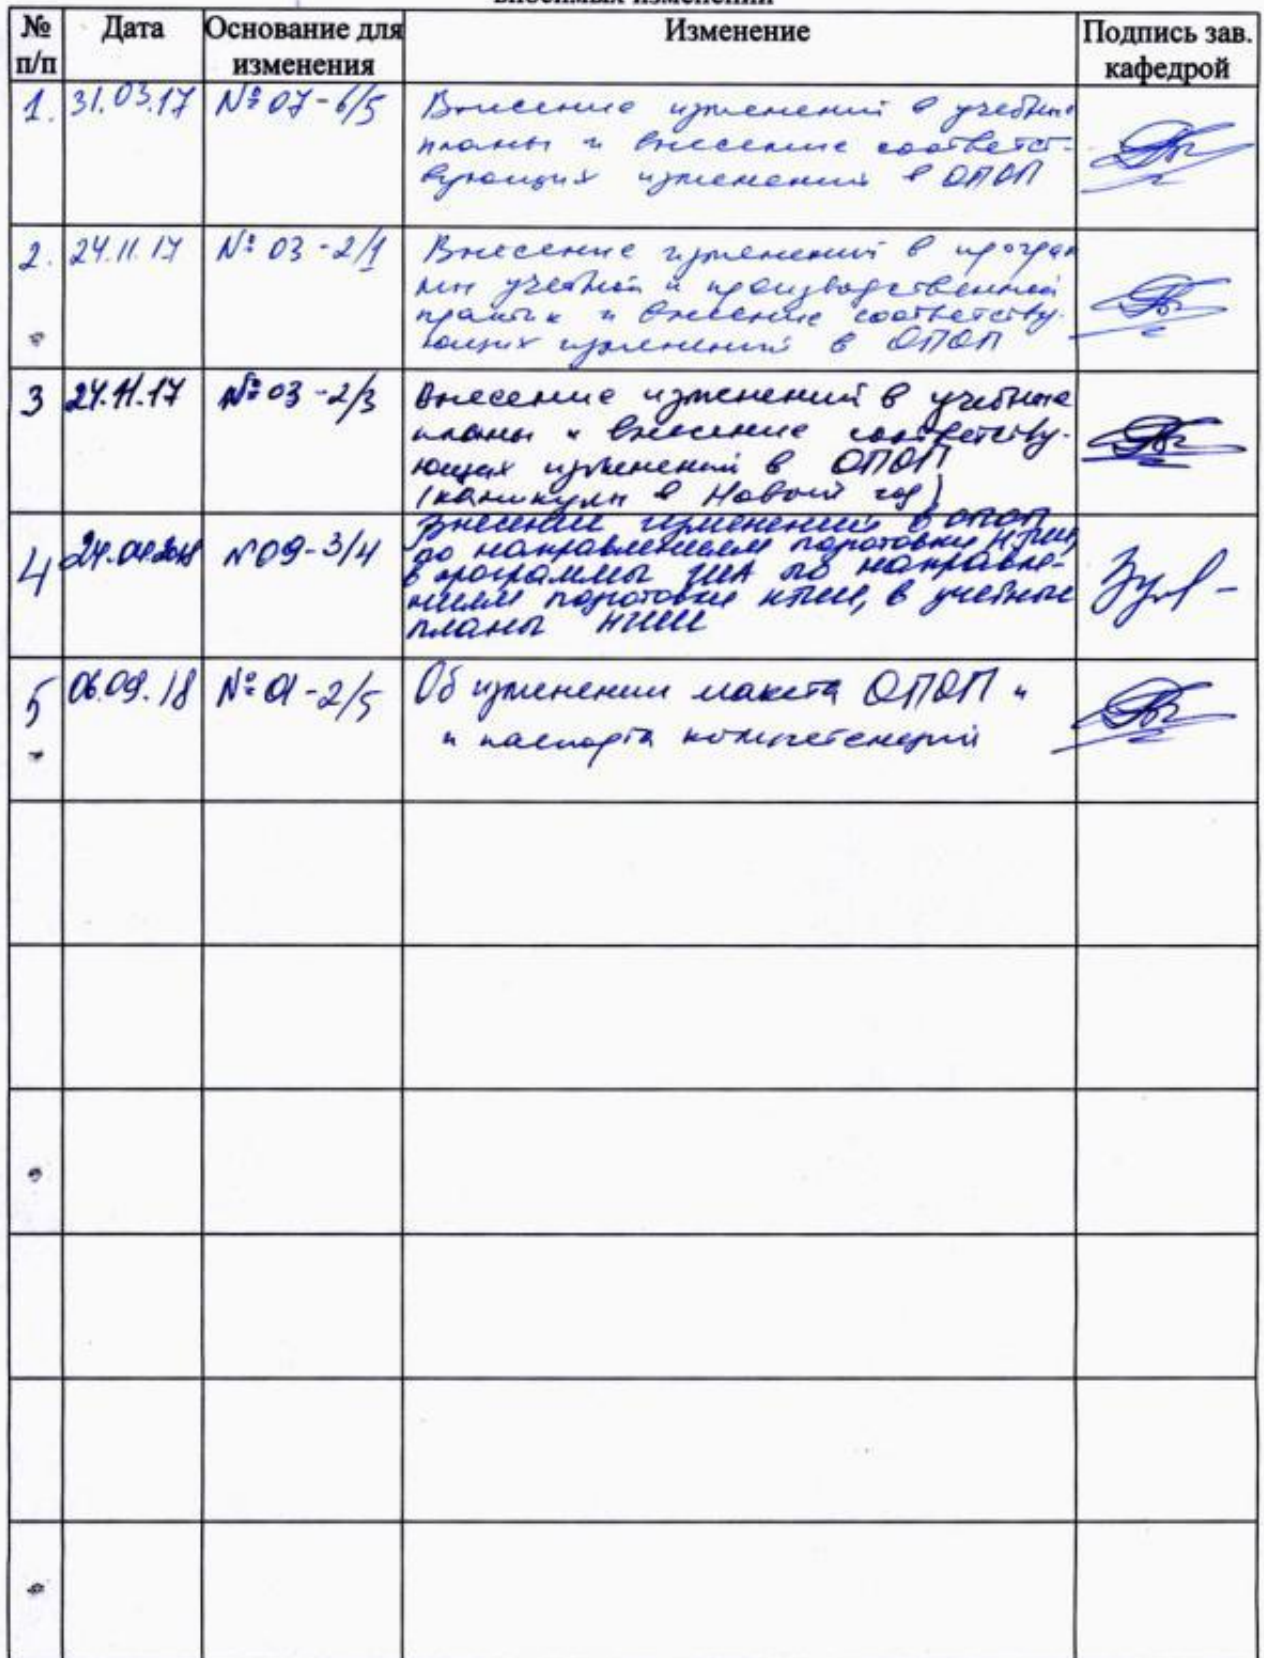 вносимых изменений
№ Дата Основание для Изменение Подпись зав.
п/п изменения кафедрой
1. 31.03.17 № 07-6/5 Внесение изменений в учебные
планы и внесение соответст-
вующих изменений в ОПОП
2. 24.11.17 № 03-2/1 Внесение изменений в програм
мы учебной и производственной
практик и внесение соответству-
ющих изменений в ОПОП
3 24.11.17 № 03-2/3 Внесение изменений в учебные
планы и внесение соответству-
ющих изменений в ОПОП
(каникулы в Новый год)
4 № 09-3/4 Внесение изменений в ОПОП
по направлениям подготовки
в программы ГИА по направле-
ниям подготовки в учебные
планы
5 06.09.18 № 01-2/5 Об изменении макета ОПОП и
и паспорта компетенций